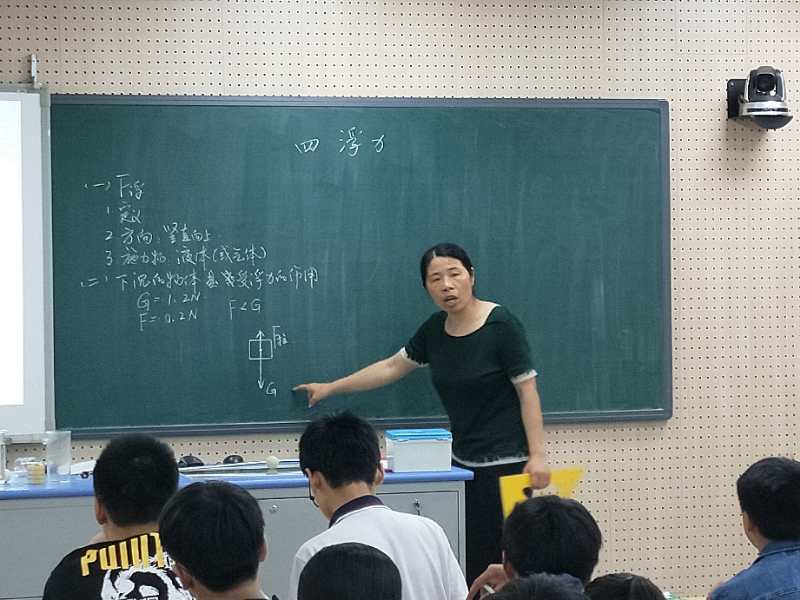 四 浮力
(一) F浮
1 定义
2 方向：竖直向上
3 施力物：液体(或气体)
(二) 下沉的物体是否受浮力的作用
G=1.2N
F=0.2N F<G
F拉
G